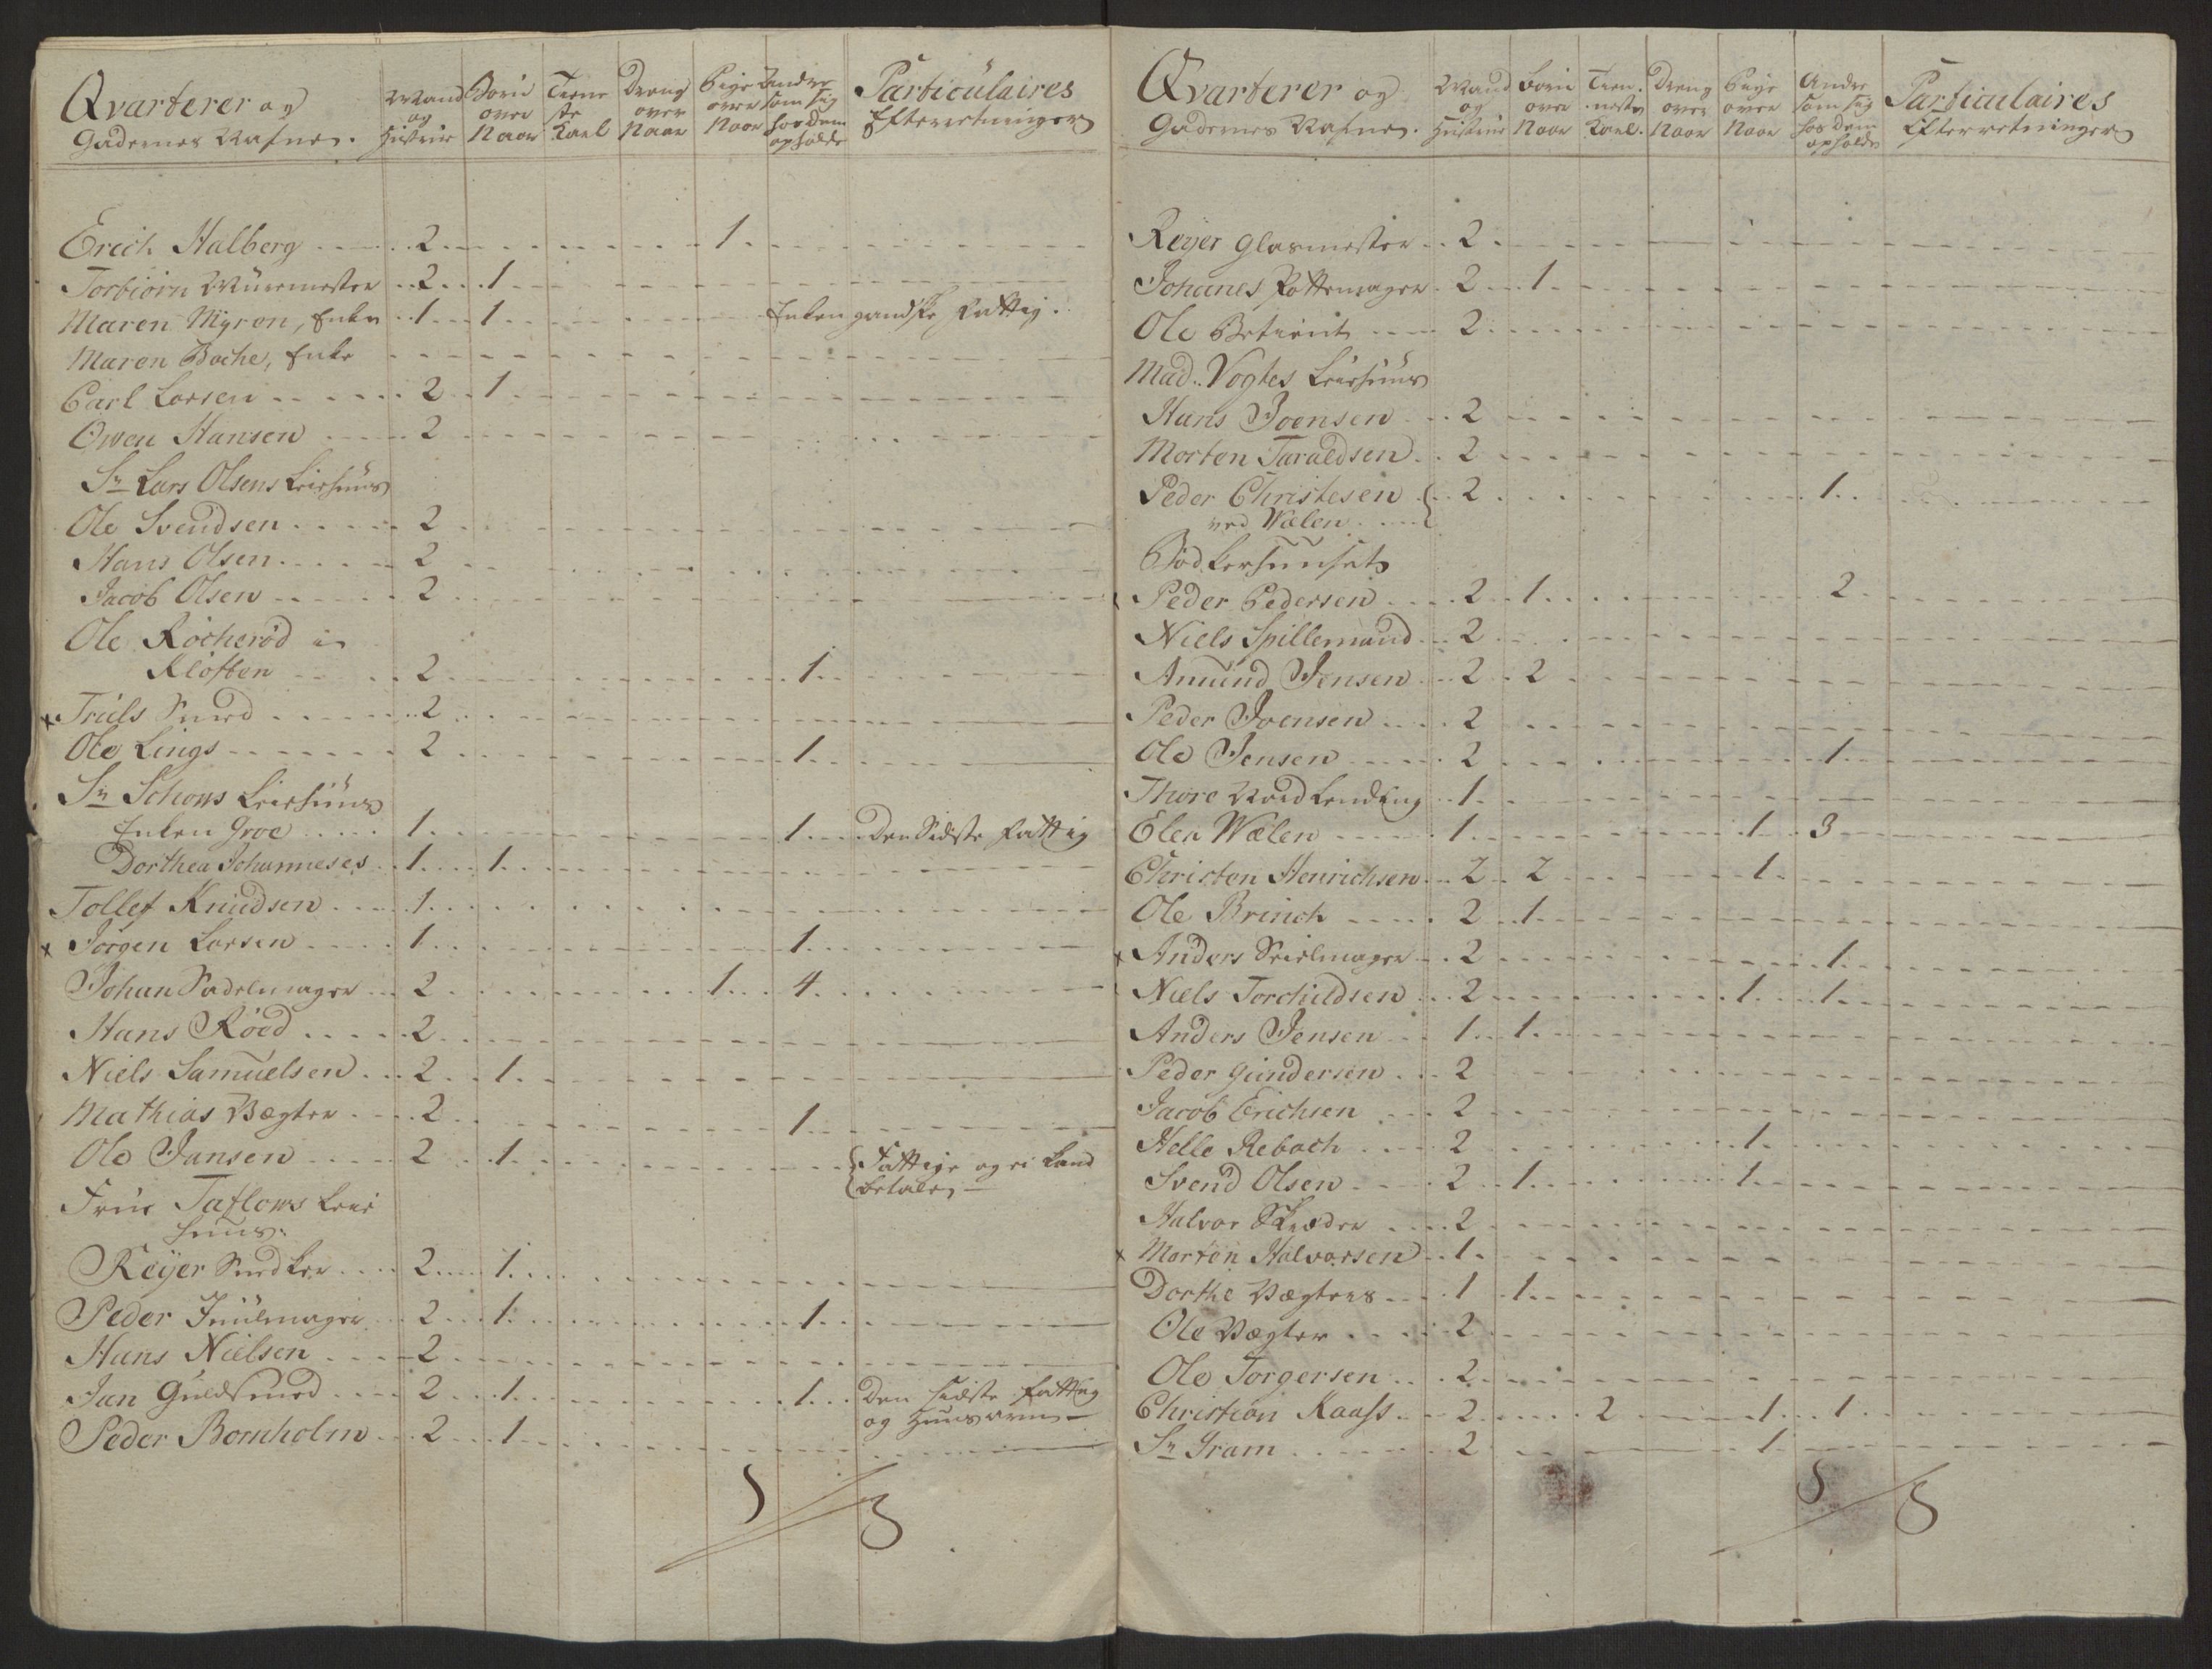 Qvarterer og
Gadernes Nafne.
Mand og Hustrue
Børn over Naar
Tienneste Karl
Dreng over Naar
Pige over Naar
Andre som sig hos dem opholde
Particulaires Efterretninger
Erich Halberg 2 1
Torbiörn Muurmester 2 1
Maren Myron, Enke 1 1 Enken gandske Fattig.
Maren Boche, Enke
Carl Larsen 2 1
Owen Hansen 2
Sr Lars Olsens Leiehuus
Ole Svendsen 2
Hans Olsen 2
Jacob Olsen 2
Ole Röcheröd i
Klöften 2 1
x Truls Smed 2
Ole Lings 2 1
Sr Schows Leiehuus
Enken Groe 1 1 Den Sidste Fattig
Dorthea Johanneses 1 1
Tollef Knudsen 1
x Jörgen Larsen 1 1
Johan Sadelmager 2 1 4
Hans Röed 2
Niels Samuelsen 2 1
Mathias Vægter 2 1
Ole Jansen 2 1 Fattige og ei kand
betale
Frue Taflows Leie
huus.
Reyer Snedker 2 1
Peder Hiulmager 2 1 1
Hans Nielsen 2
Jan Guldsmed 2 1 1 Den sidste Fattig
og Huusarm
Peder Bornholm 2 1
Qvarterer og
Gadernes Nafne.
Mand og Hustrue
Børn over Naar
Tienneste Karl.
Dreng over Naar
Pige over Naar
Andre som sig hos dem opholde
Particulaires Efterretninger
Reyer Glasmester 2
Johanes Pottemager 2 1
Ole Betient 2
Mad. Vogtes Leiehuus
Hans Joensen 2
Morten Taraldsen 2
Peder Christesen 2 1
ved Wælen
Bödkerhuuset
Peder Pedersen 2 1 2
Niels Spillemand 2
Amund Jensen 2 2
Peder Joensen 2
Ole Jensen 2 1
Thore Nordlending 1
Elen Wælen 1 1 3
Christen Henrichsen 2 2 1
Ole Brinch 2 1
x Anders Seielmager 2 1
Niels Torchildsen 2 1 1
Anders Jensen 1 1
Peder Gundersen 2
Jacob Erichsen 2
Helle Reboch 2 1
Svend Olsen 2 1 1
Halvor Skræder 2
x Morten Halvorsen 1
Dorthe Vægters 1 1
Ole Vægter 2
Ole Torgersen 2
Christian Kaass 2 2 1 1
Sr Gram 2 1